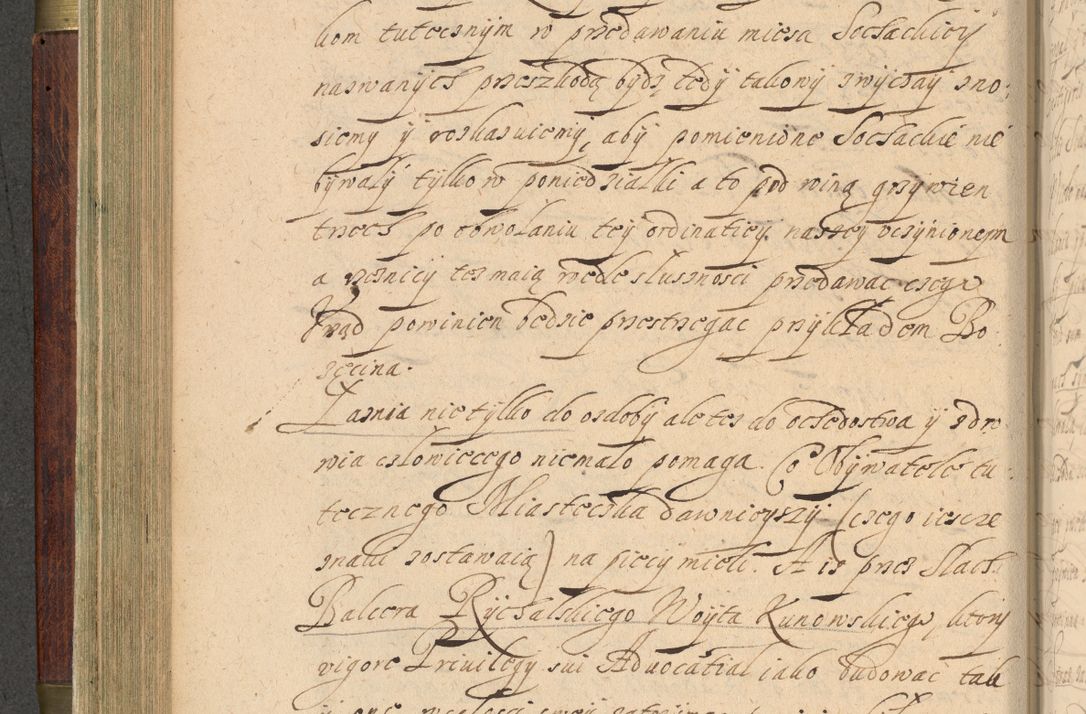 kom tutecsnym w przedawaniu miesa Sochackiey
nazwanych przeszkodą bydz tedy takowy zwyczay zno:
siemy y roskazuiemy, aby pomienione Sochackie nie
bywały tylko w poniedziałki a to pod winą grzywien
trzech po obwołaniu tey ordinatiey naszey uczynionem
a rzeznicy tez maią wedle sluszności przedawac czego
Vrząd powinien bedzie przestrzegac przykładem Bo:
zęcina.
Łaznia nie tylko do ozdoby ale tez do ochedostwa y zdro
wia człowieczego niemało pomaga. Co Obywatele tu:
tecznego Miasteczka dawnieyszy (czego ieszcze
znaki zostawaią) na pieczy mieli. A iż przez Slach:
Balcera Rychalskiego Woyta Kunowskiego, ktory
vigore Privilegy sui Advocatial iako budować tak